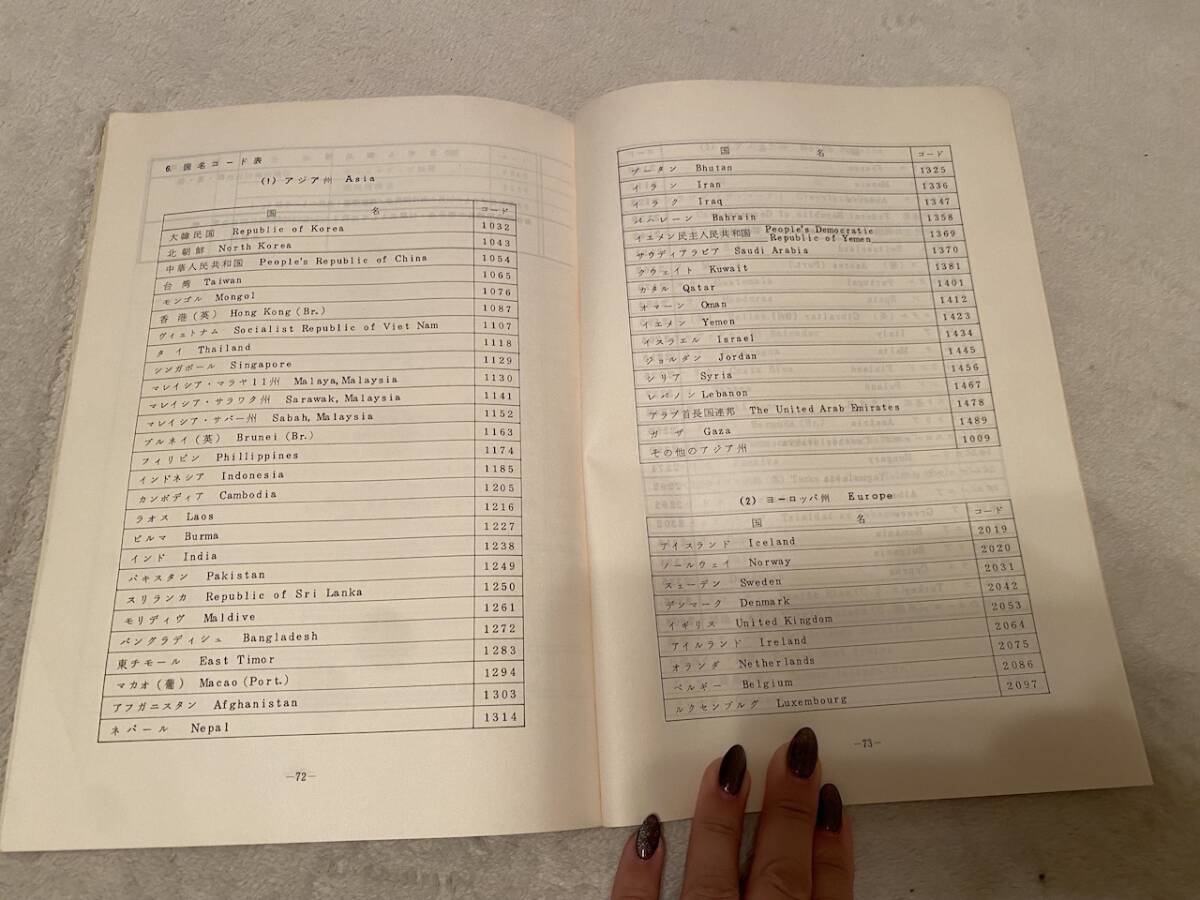 6. 国名コード表
(1) アジア州 Asia
国名 コード
大韓民国 Republic of Korea 1032
北朝鮮 North Korea 1043
中華人民共和国 People's Republic of China 1054
台湾 Taiwan 1065
モンゴル Mongol 1076
香港(英) Hong Kong (Br.) 1087
ヴィェトナム Socialist Republic of Viet Nam 1107
タイ Thailand 1118
シンガポール Singapore 1129
マレイシア・マラヤ11州 Malaya, Malaysia 1130
マレイシア・サラワク州 Sarawak, Malaysia 1141
マレイシア・サバー州 Sabah, Malaysia 1152
ブルネイ(英) Brunei (Br.) 1163
フィリピン Phillippines 1174
インドネシア Indonesia 1185
カンボディア Cambodia 1205
ラオス Laos 1216
ビルマ Burma 1227
インド India 1238
パキスタン Pakistan 1249
スリランカ Republic of Sri Lanka 1250
モリディヴ Maldive 1261
バングラディシュ Bangladesh 1272
東チモール East Timor 1283
マカオ(葡) Macao (Port.) 1294
アフガニスタン Afghanistan 1303
ネパール Nepal 1314
—72—
国名 コード
ブータン Bhutan 1325
イラン Iran 1336
イラク Iraq 1347
バハレーン Bahrain 1358
イエメン民主人民共和国 People's Democratic 1369
Republic of Yemen
サウディアラビア Saudi Arabia 1370
クウェイト Kuwait 1381
カタル Qatar 1401
オマーン Oman 1412
イエメン Yemen 1423
イスラエル Israel 1434
ジョルダン Jordan 1445
シリア Syria 1456
レバノン Lebanon 1467
アラブ首長国連邦 The United Arab Emirates 1478
ガザ Gaza 1489
その他のアジア州 1009
(2) ヨーロッパ州 Europe
国名 コード
アイスランド Iceland 2019
ノールウェイ Norway 2020
スェーデン Sweden 2031
デンマーク Denmark 2042
イギリス United Kingdom 2053
アイルランド Ireland 2064
オランダ Netherlands 2075
ベルギー Belgium 2086
ルクセンブルグ Luxembourg 2097
—73—